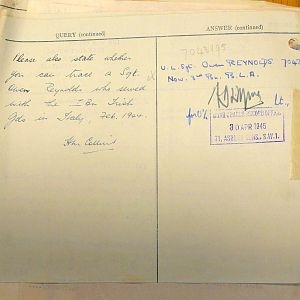 QUERY (continued)
Please also state whether
you can trace a Sgt.
Owen Reynolds who served
with the I Bn Irish
Gds in Italy, Feb. 1944.
ANSWER (continued)
7043195
U.L. Sgt. Owen REYNOLDS 7043
Nov. 3rd Bn. B.L.A.
for O i/c
Lt.,
30 APR 1945
S.W.1.